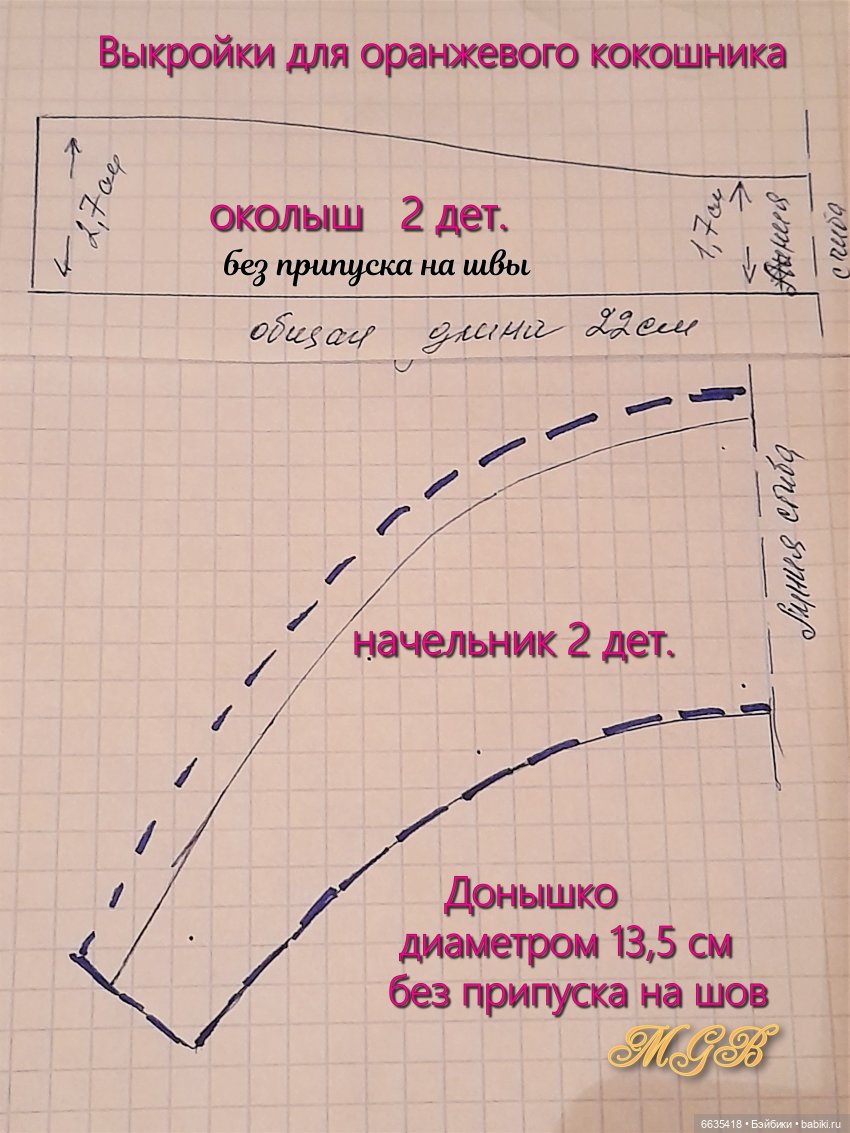 Выкройки для оранжевого кокошника
2,7см
околыш 2 дет.
без припуска на швы
1,7см
Линия
сгиба
общая длина 22см
Линия сгиба
начельник 2 дет.
Донышко
диаметром 13,5 см
без припуска на шов
MGB
6635418 • Бэйбики • babiki.ru